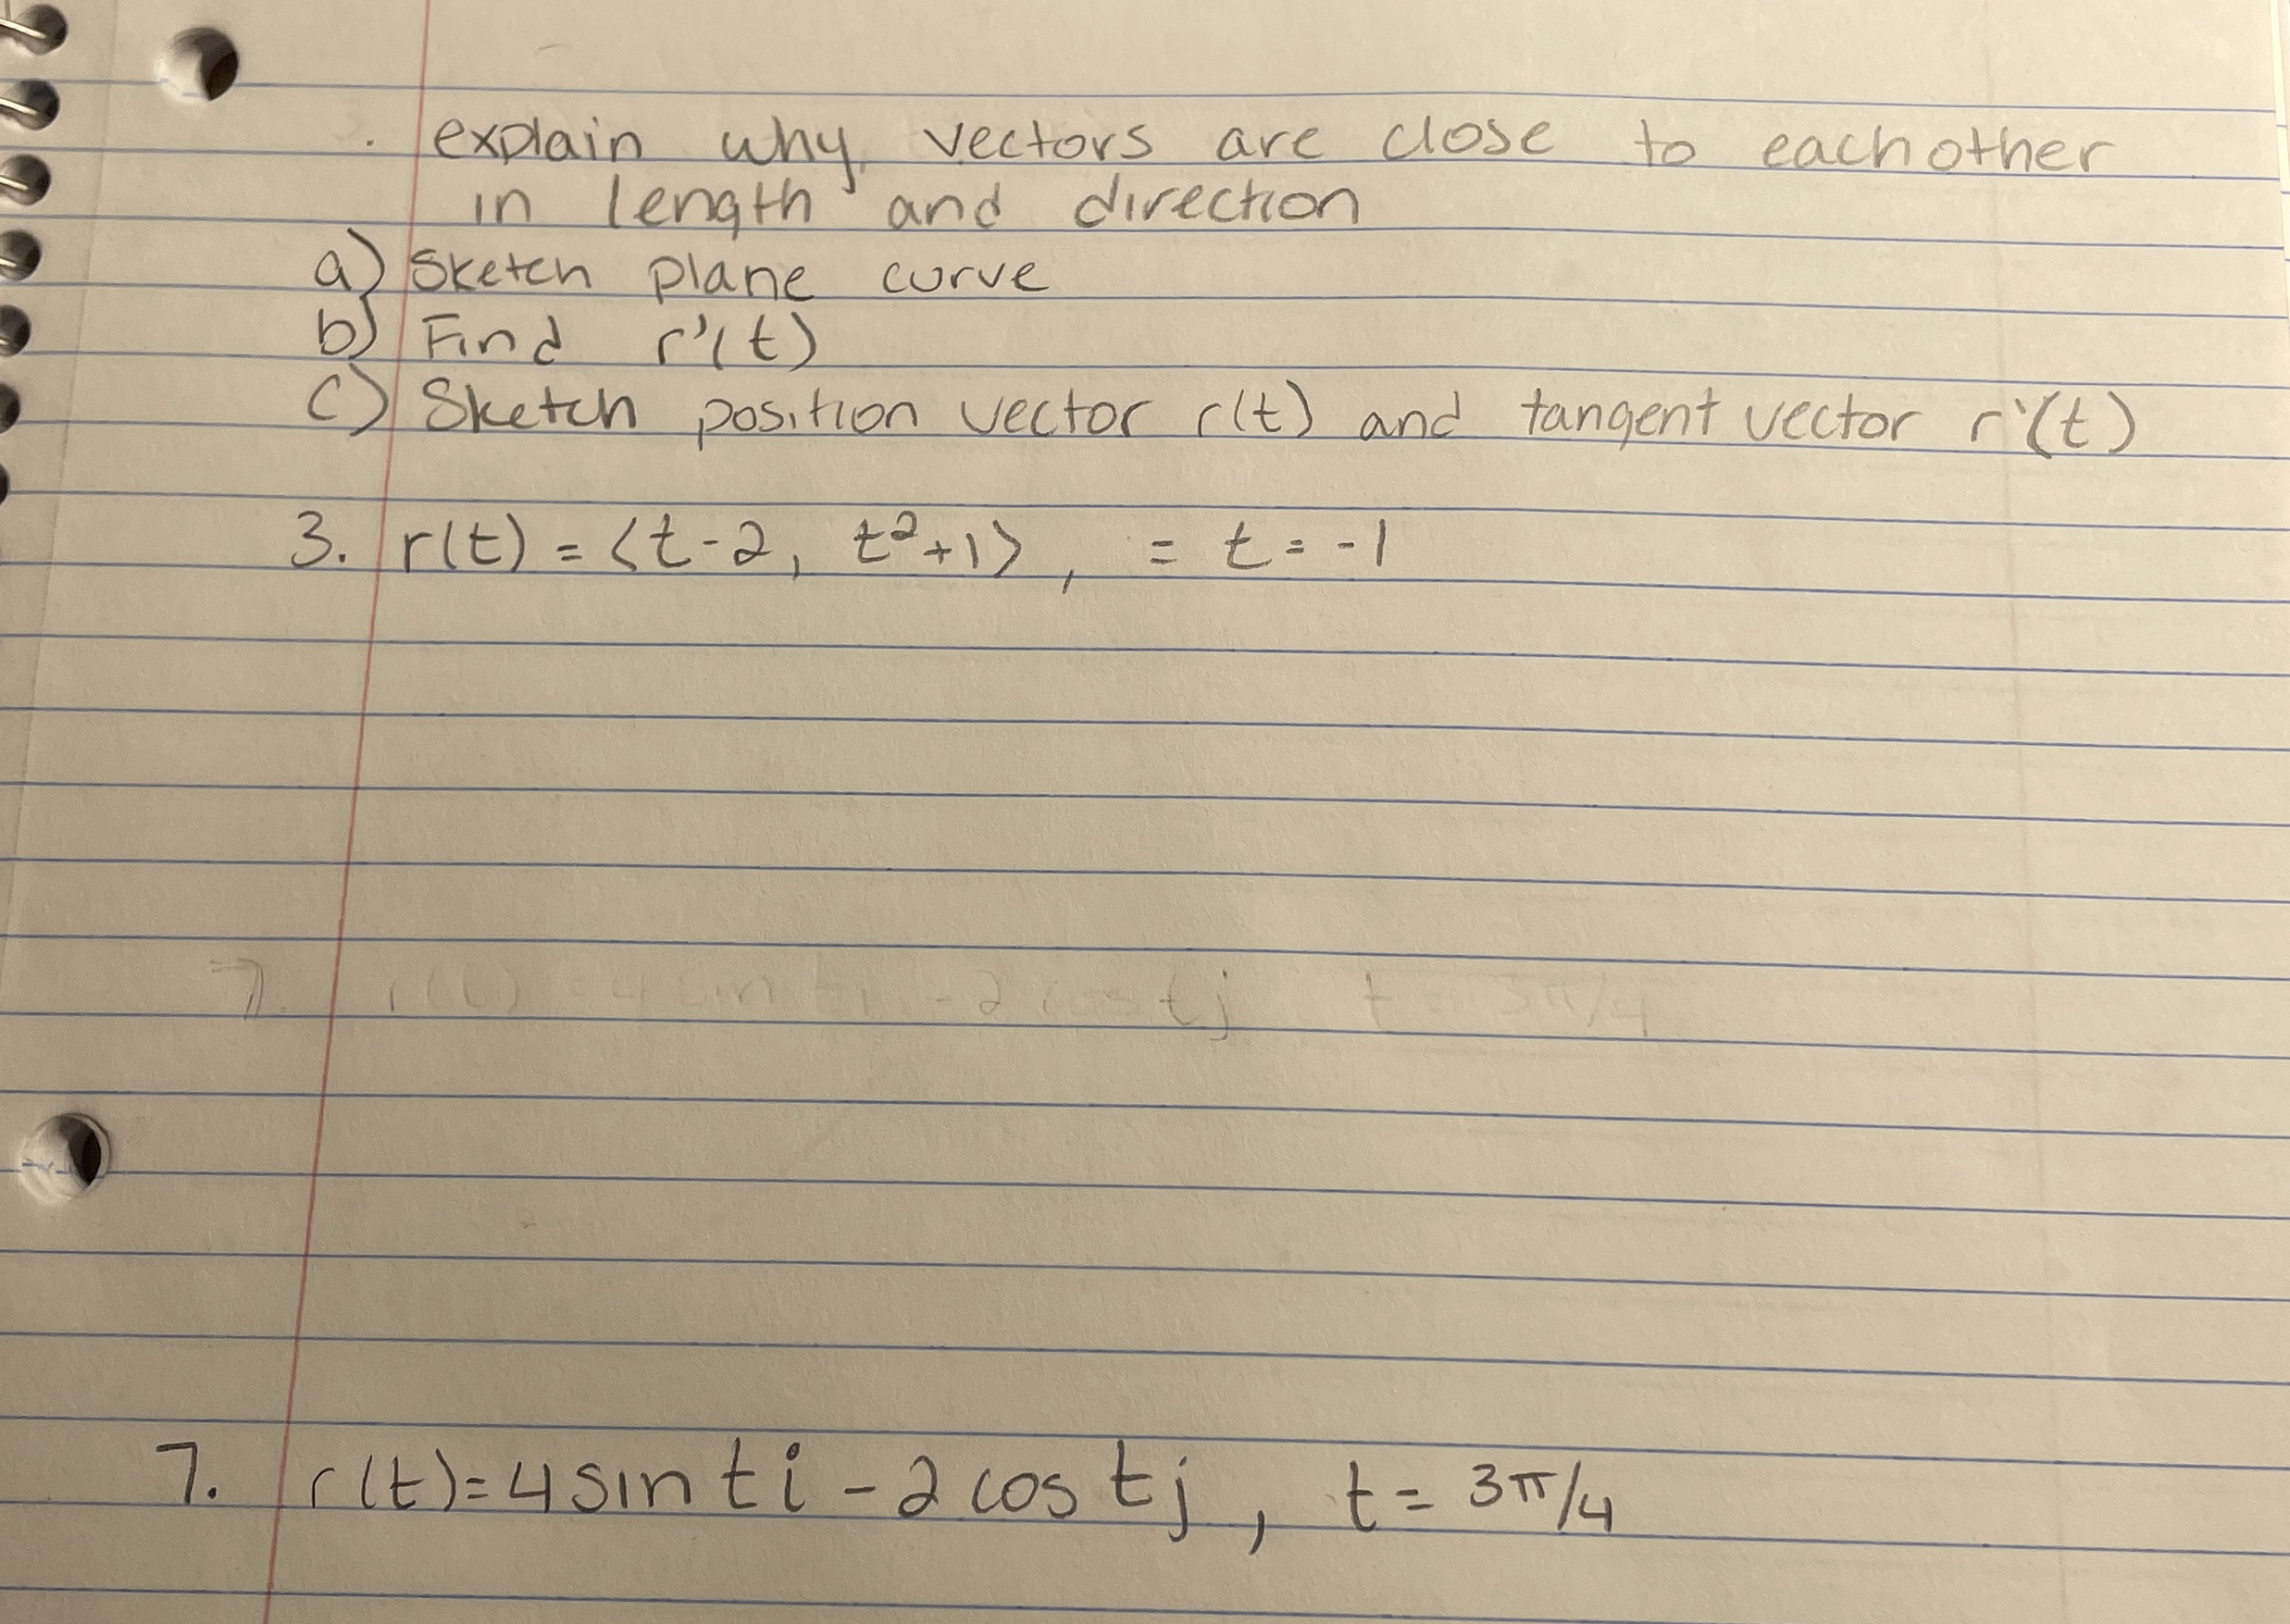 . explain why, vectors are close to eachother
in length and direction
a) Sketch plane curve
b) Find r'(t)
c) Sketch position vector r(t) and tangent vector r'(t)
3. r(t) = ⟨t-2, t²+1⟩, = t = -1
7. r(t) = 4 sin ti - 2 cos tj t = 3π/4
7. r(t) = 4 sin t i - 2 cos t j, t = 3π/4